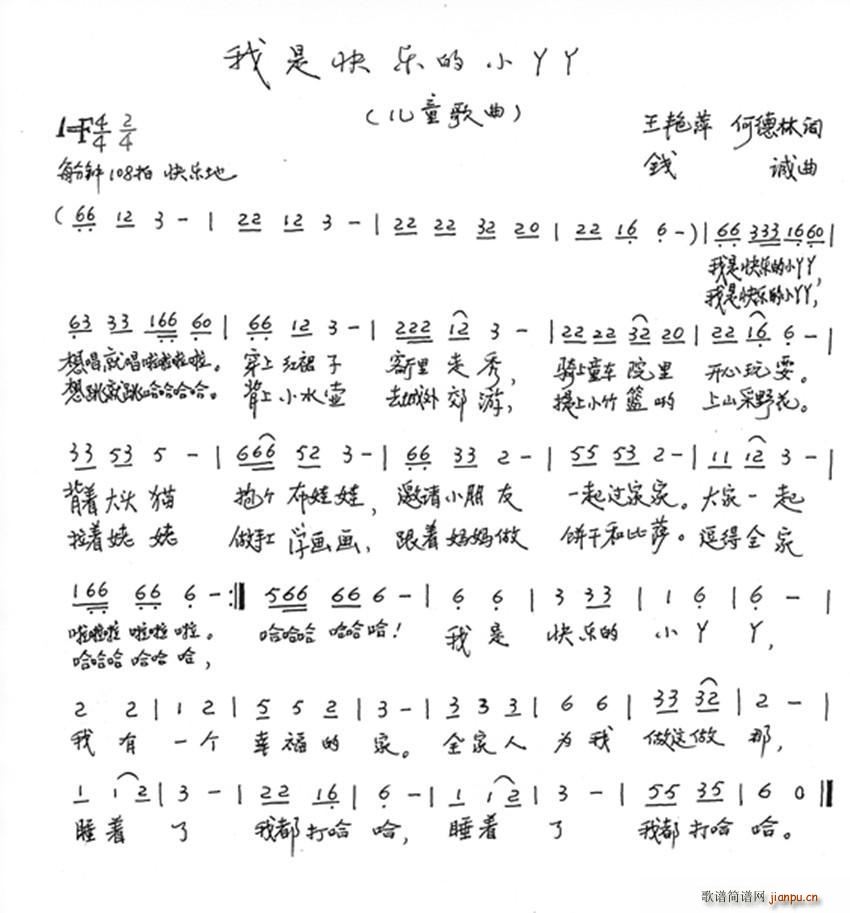 我是快乐的小丫丫
(儿童歌曲)
1=F 4/4 2/4
王艳萍 何德林词
每分钟108拍 快乐地
钱 诚曲
( 66 12 3 - | 22 12 3 - | 22 22 32 20 | 22 16 6 - ) | 66 333 16 60 |
我是快乐的小丫丫,
我是快乐的小丫丫,
63 33 166 60 | 66 12 3 - | 222 12 3 - | 22 22 32 20 | 22 16 6 - |
想唱就唱啦啦啦啦。 穿上红裙子 客厅里走秀, 骑上童车院里 开心玩耍。
想跳就跳哈哈哈哈。 背上小水壶 去城外郊游, 提上小竹篮哟 上山采野花。
33 53 5 - | 666 52 3 - | 66 33 2 - | 55 53 2 - | 11 12 3 - |
背着大头猫 抱个布娃娃, 邀请小朋友 一起过家家。 大家一起
拉着姥姥 做手工学画画, 跟着妈妈做 饼干和比萨。 逗得全家
166 66 6 - :‖ 566 66 6 - | 6 6 | 3 33 | 1 6 | 6 - |
啦啦啦 啦啦 啦。 哈哈哈 哈哈哈! 我是 快乐的 小丫丫,
哈哈哈 哈哈 哈,
2 2 | 1 2 | 5 5 2 | 3 - | 3 3 3 | 6 6 | 33 32 | 2 - |
我有一个 幸福的家。 全家人 为我 做这做那,
1 1 2 | 3 - | 22 16 | 6 - | 1 1 2 | 3 - | 55 35 | 6 0 ‖
睡着了 我都打哈哈, 睡着了 我都打哈哈。
歌谱简谱网 jianpu.cn